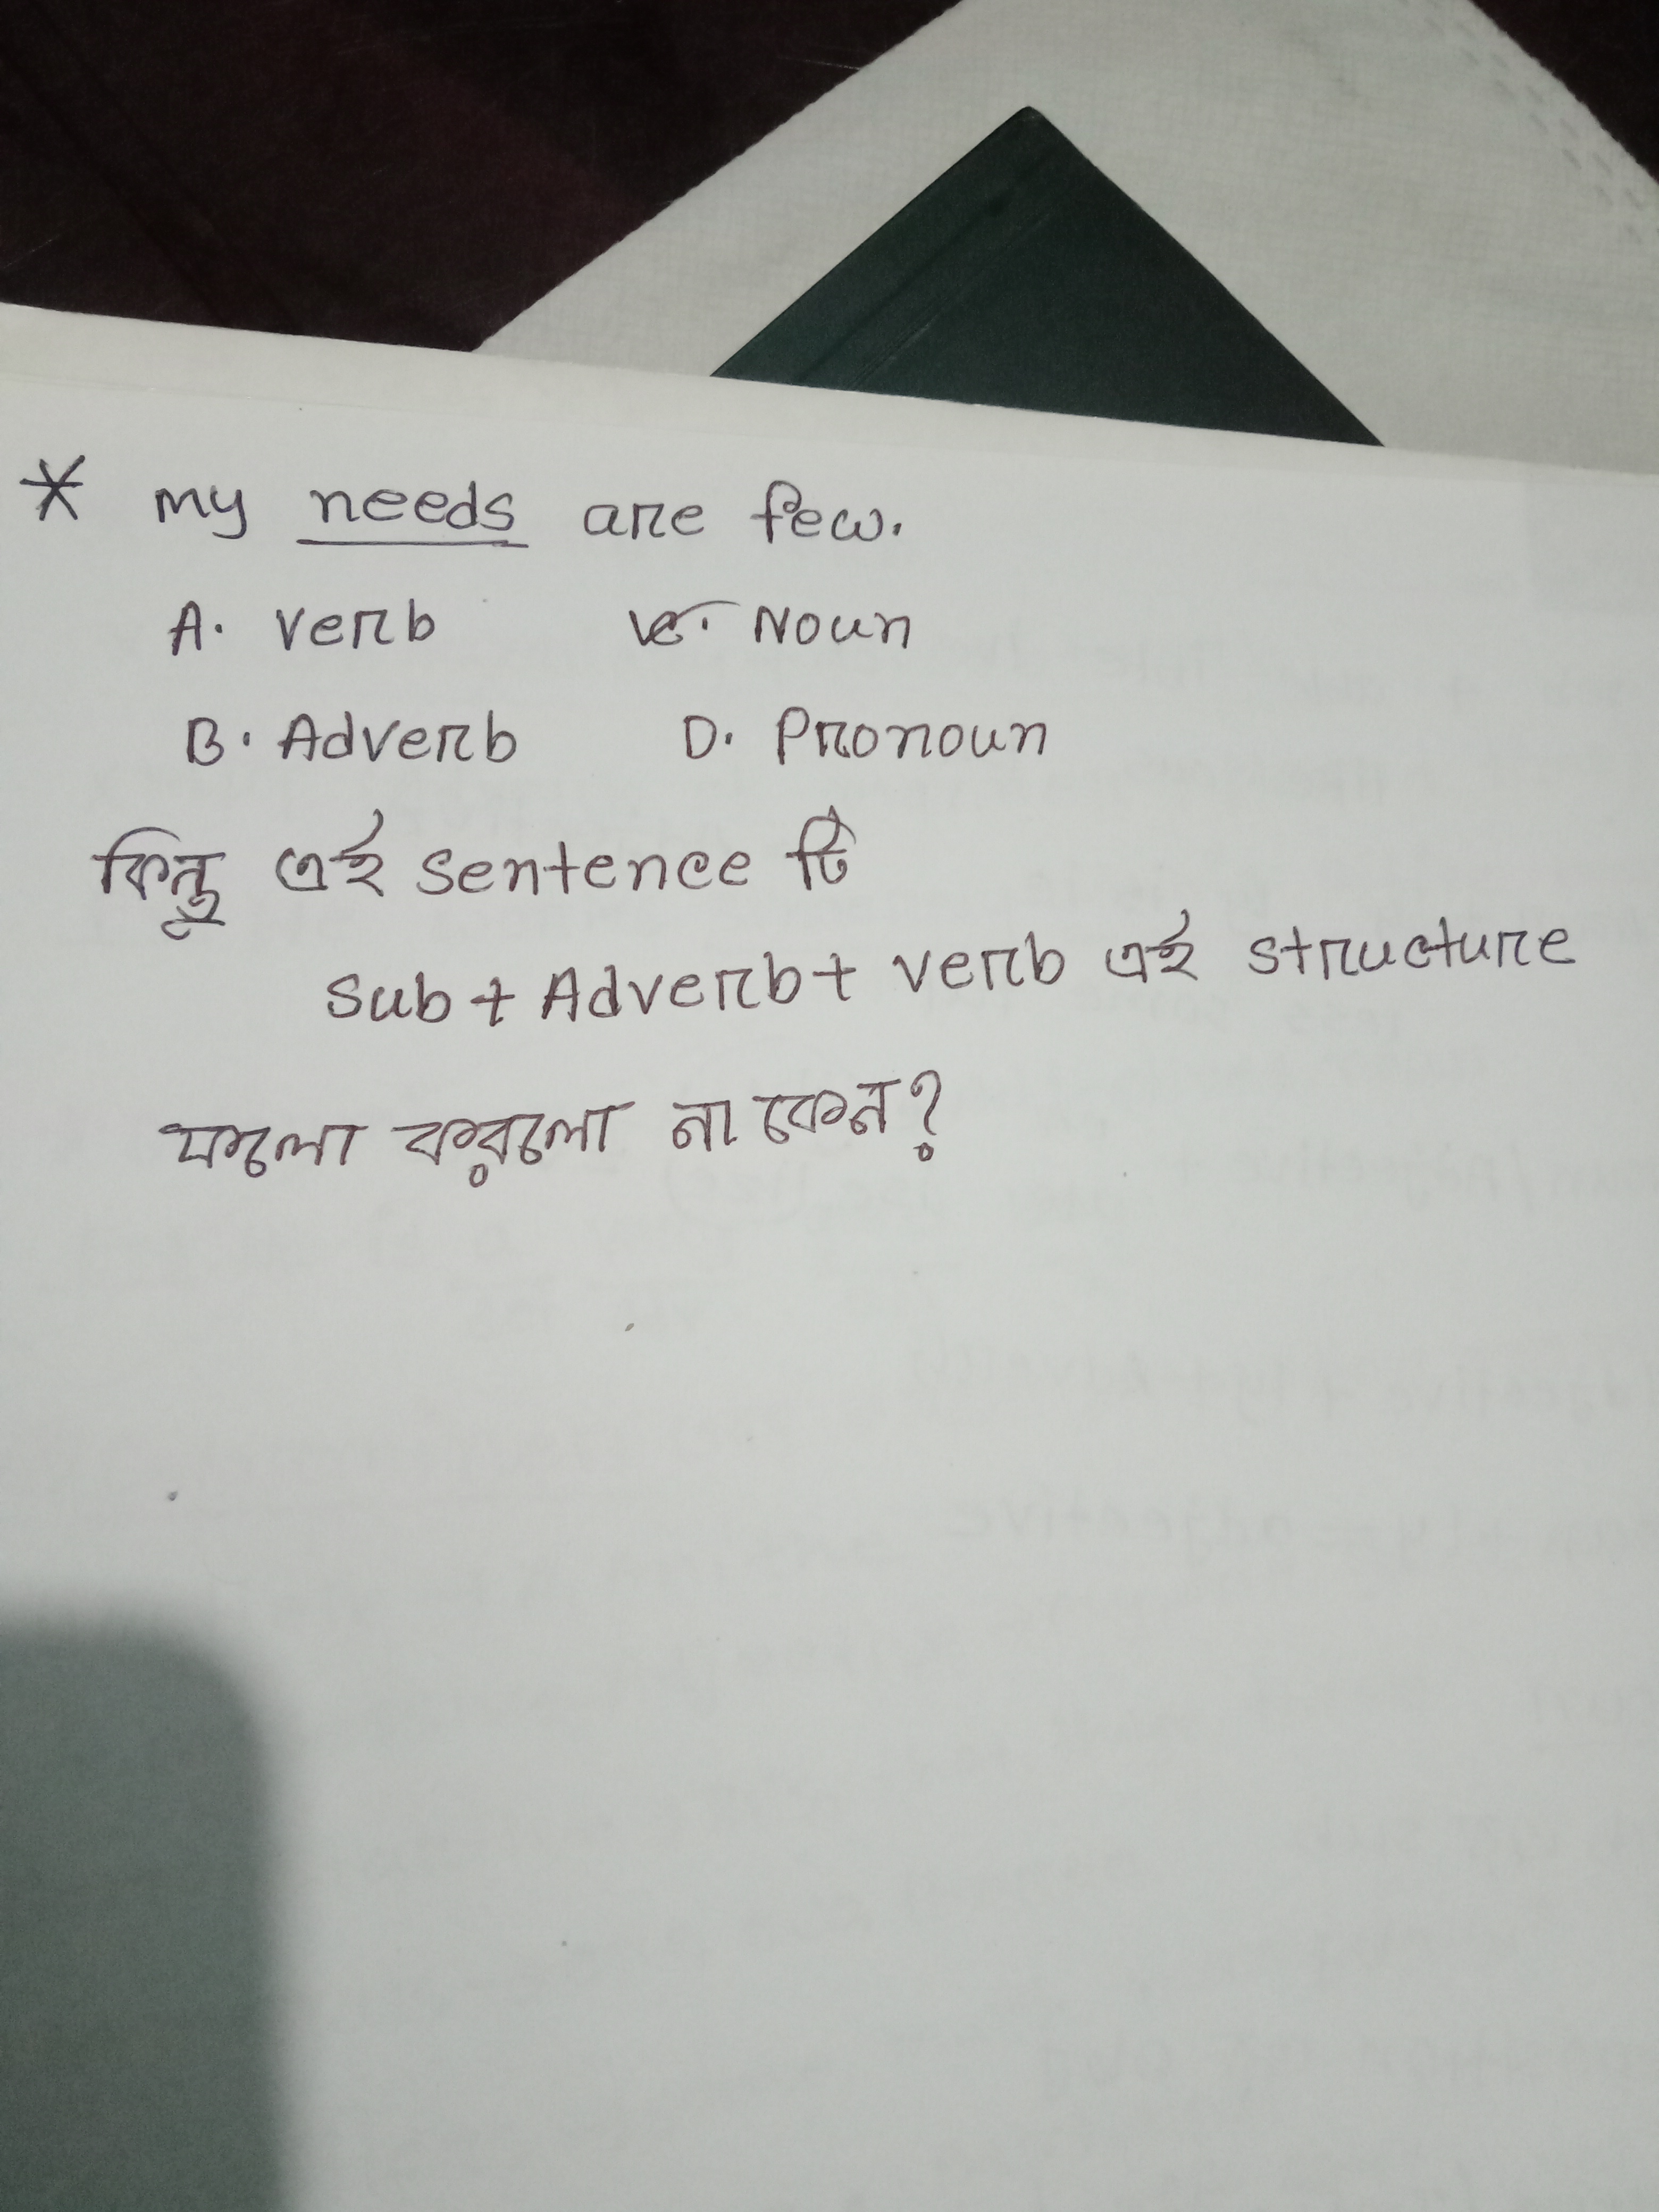 * my needs are few.
A. verb C. Noun
B. Adverb D. Pronoun
কিন্তু এই sentence টি
Sub + Adverb + verb এই structure
ফলো করলো না কেন?